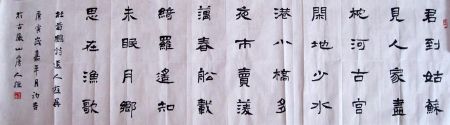 君到姑蘇
見人家盡
枕河古宮
閑地少水
港小橋多
夜市賣菱
藕春舩載
綺羅遙知
未眠月鄉
思在漁歌
杜荀鶴詩送人遊吳
庚寅歲嘉平月初吉
於古 山房